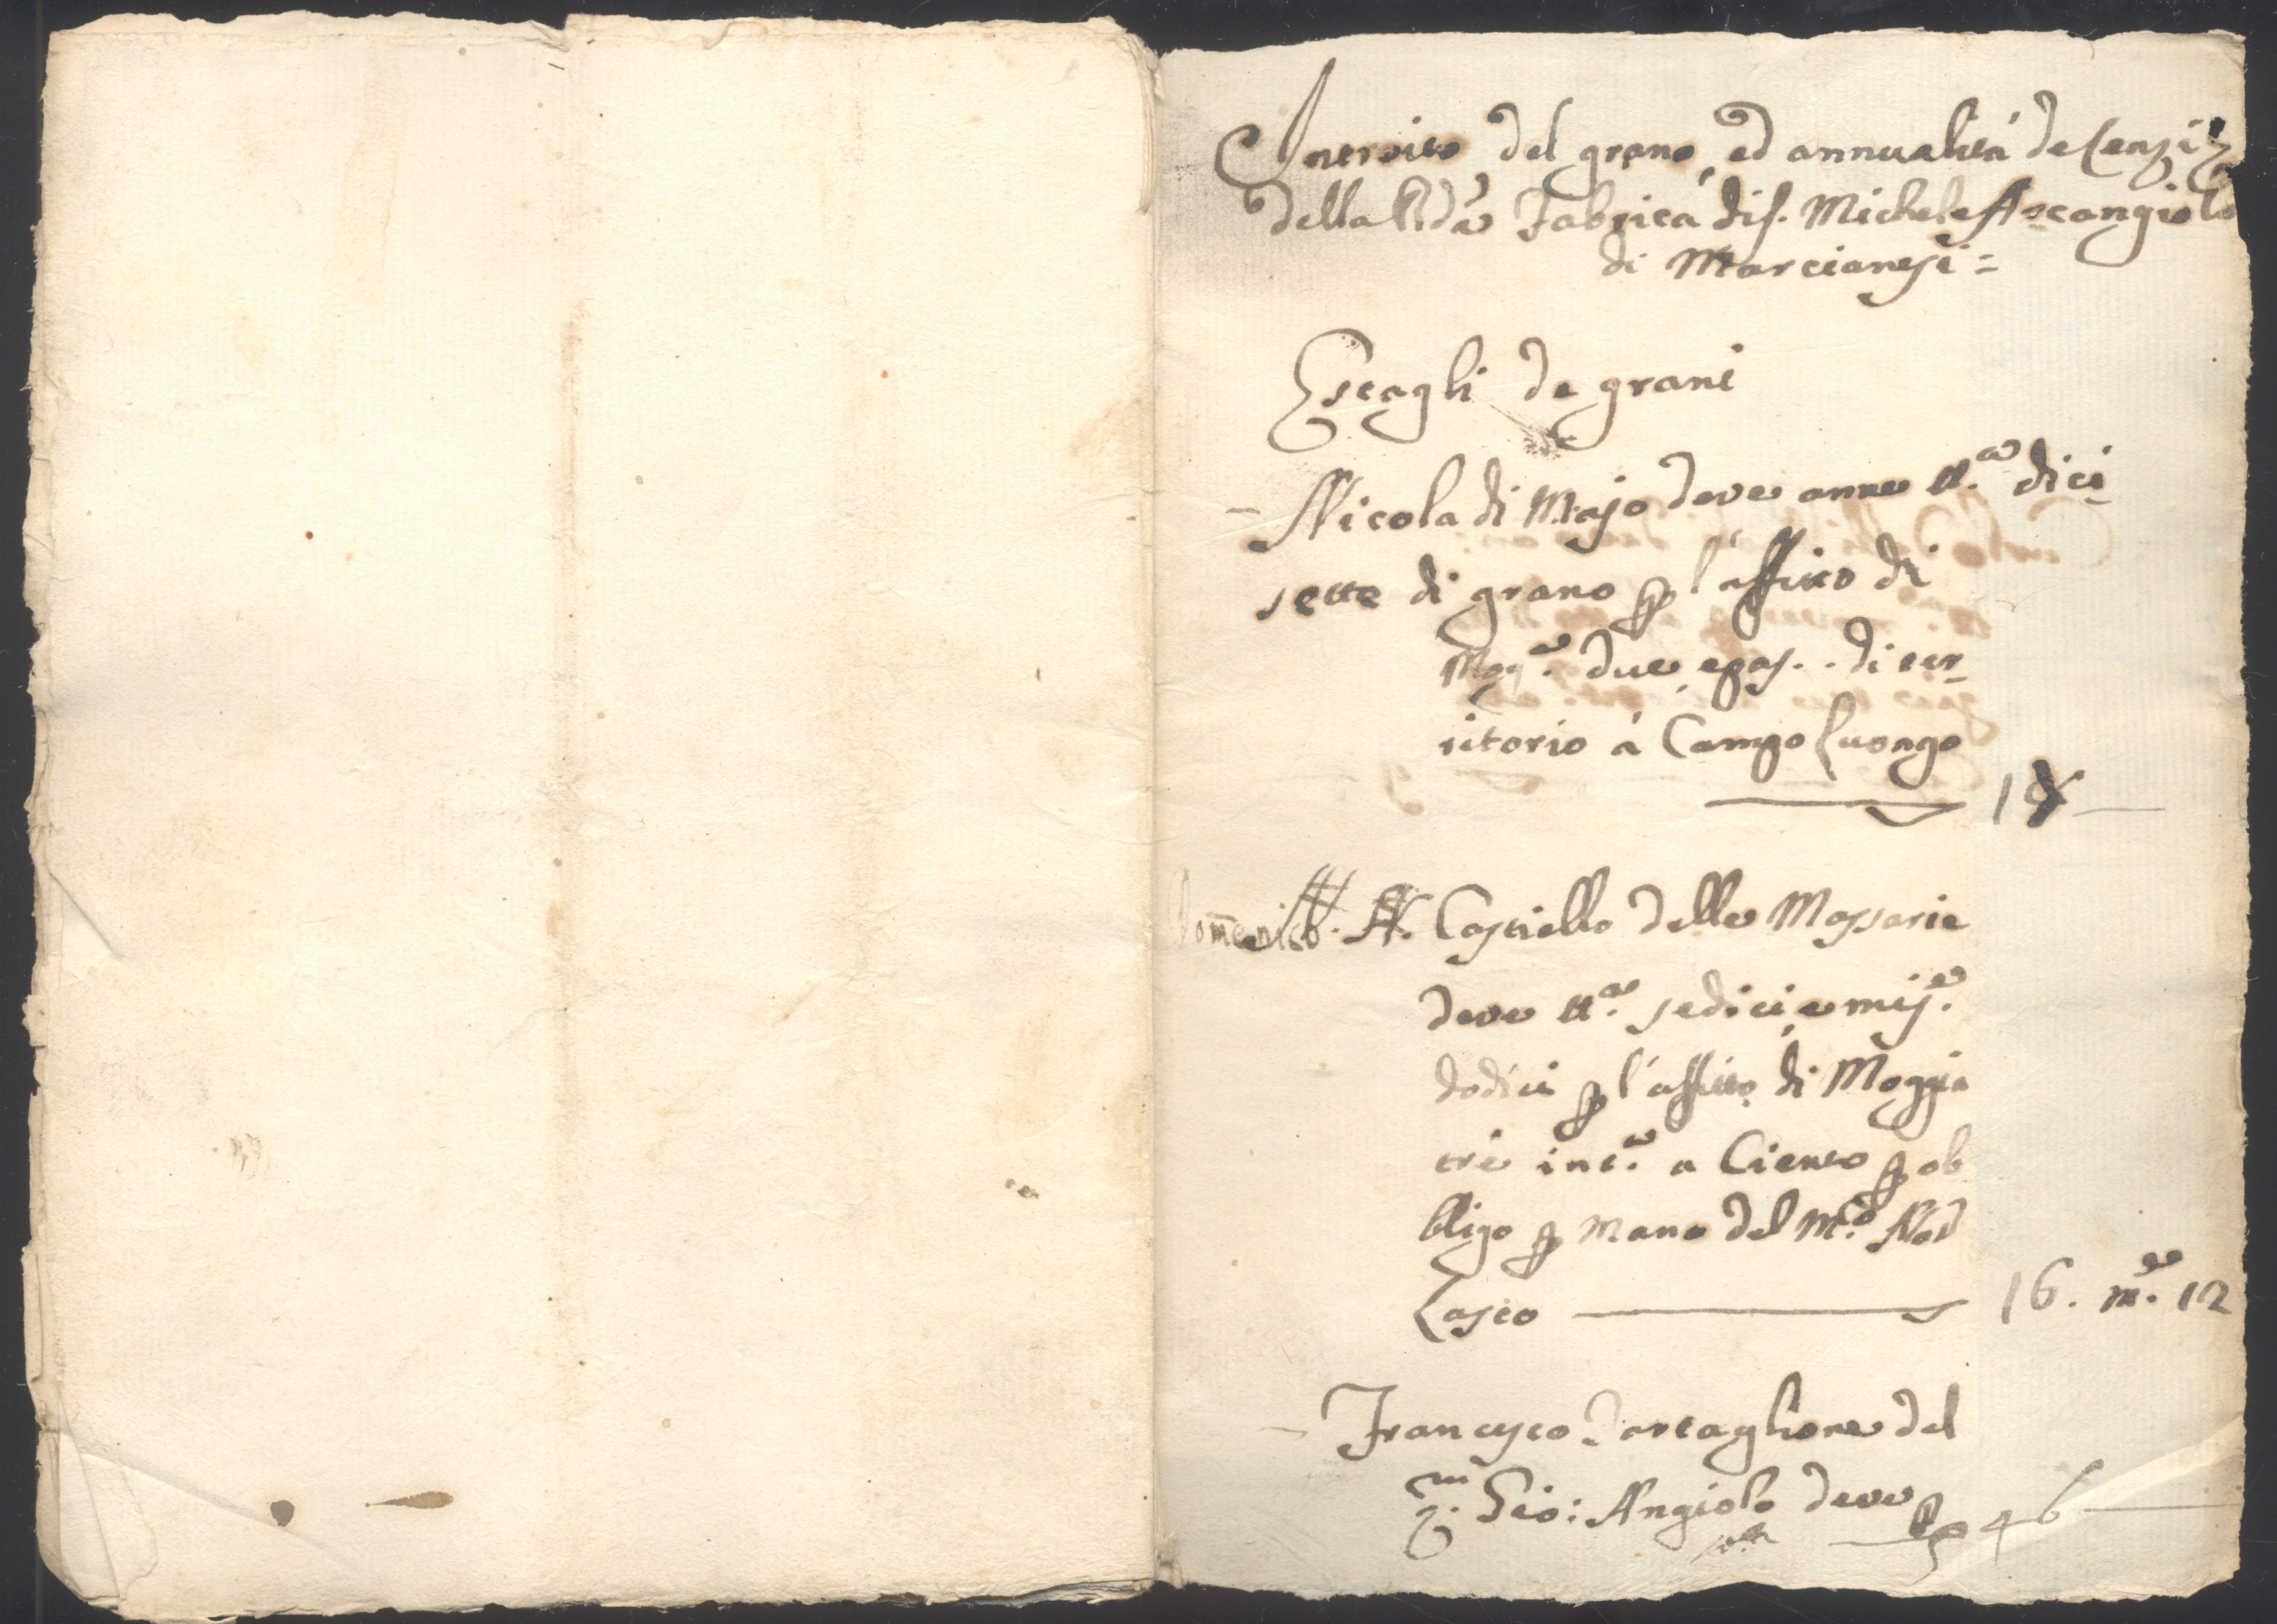 Introito del grano, ed annualità de Censi
della Fabrica di S. Michele Arcangiolo
di Marcianesi =
Estagli de grani
Nicola di Majo deve anne tt.a dici-
sette di grano p l'affitto di
Mog.a due, e pas.. di ter-
ritorio à Campo Luongo
Domenico N. N. Castiello delle Massarie
deve tt.a sedici, e mis.e
dodici p l'affitto di Moggia
tre int.a a Ciento p ob
bligo p mano del M.co Not
Lasco 16. m.e 12
Francesco Tartaglione del
q.m Gio: Angiolo deve
46